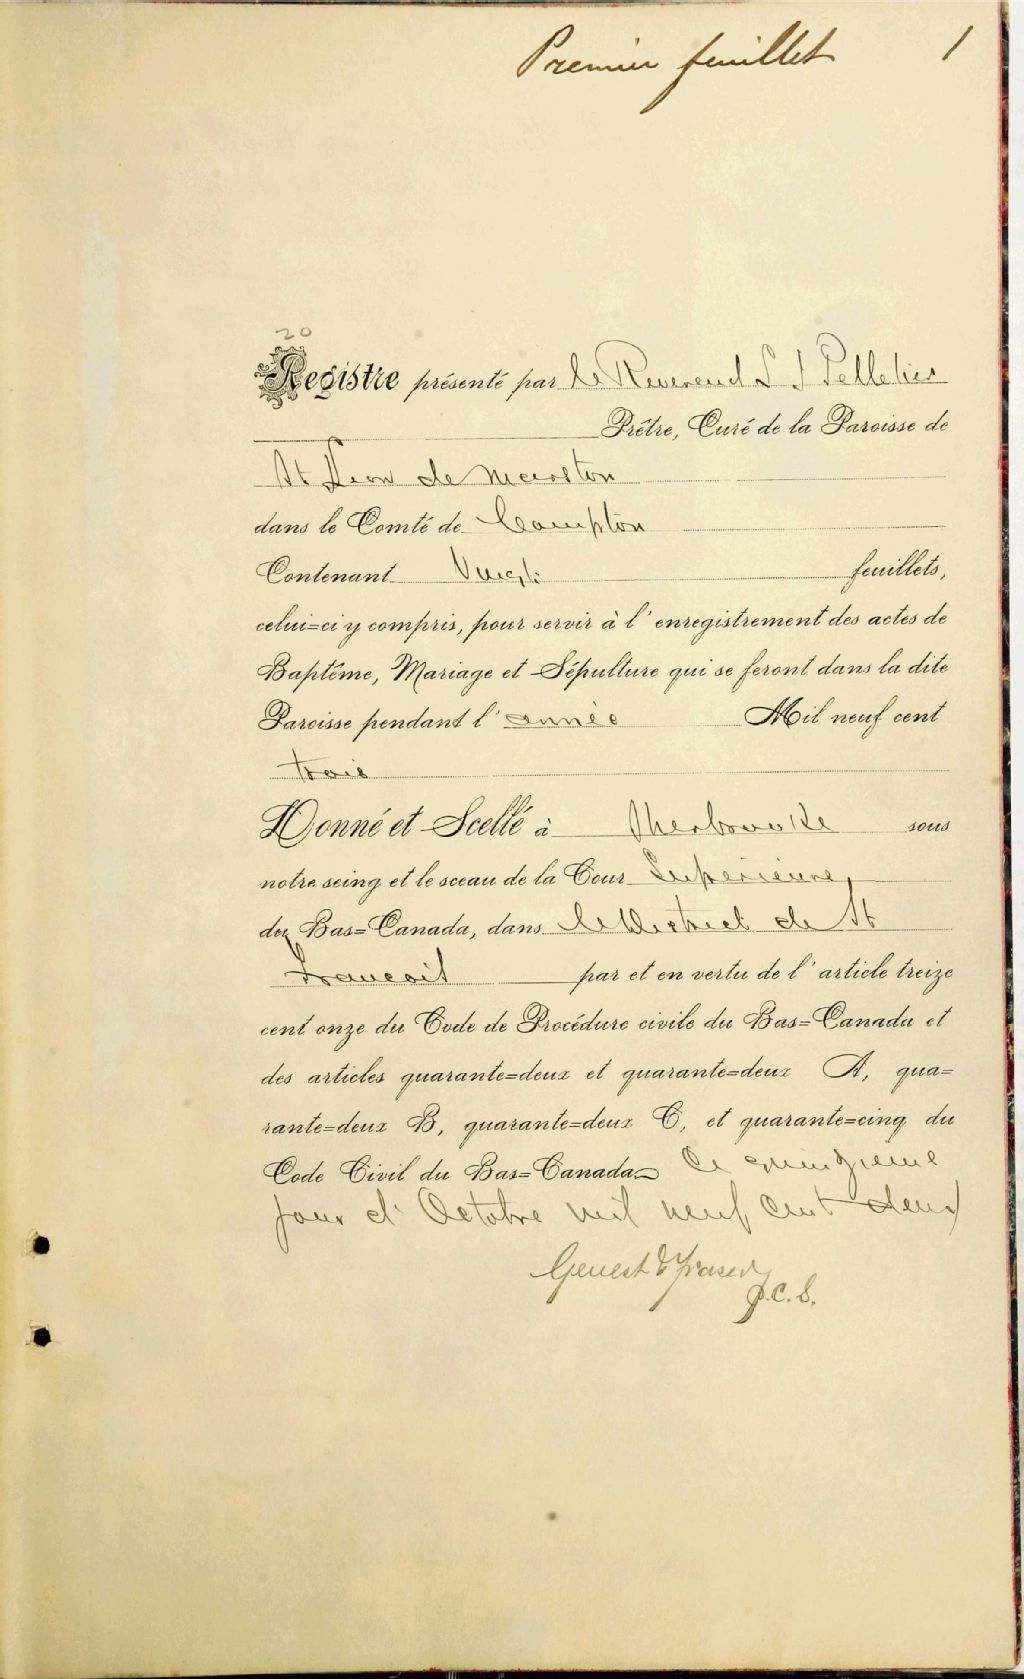 Premier feuillet 1
20
Registre présenté par le Reverend L J Pelletier
Prêtre, Curé de la Paroisse de
St Leon de Marston
dans le Comté de Compton
Contenant Vingt feuillets,
celui=ci y compris, pour servir à l'enregistrement des actes de
Baptême, Mariage et Sépulture qui se feront dans la dite
Paroisse pendant l'année Mil neuf cent
trois
Donné et Scellé à Sherbrooke sous
notre seing et le sceau de la Cour Superieure,
du Bas=Canada, dans le District de St
Francois par et en vertu de l'article treize
cent onze du Code de Procédure civile du Bas=Canada et
des articles quarante=deux et quarante=deux A, qua=
rante=deux B, quarante=deux C, et quarante=cinq du
Code Civil du Bas=Canada Ce quinzieme
jour d'Octobre mil neuf cent deux
Genest & Fraser
P.C.S.